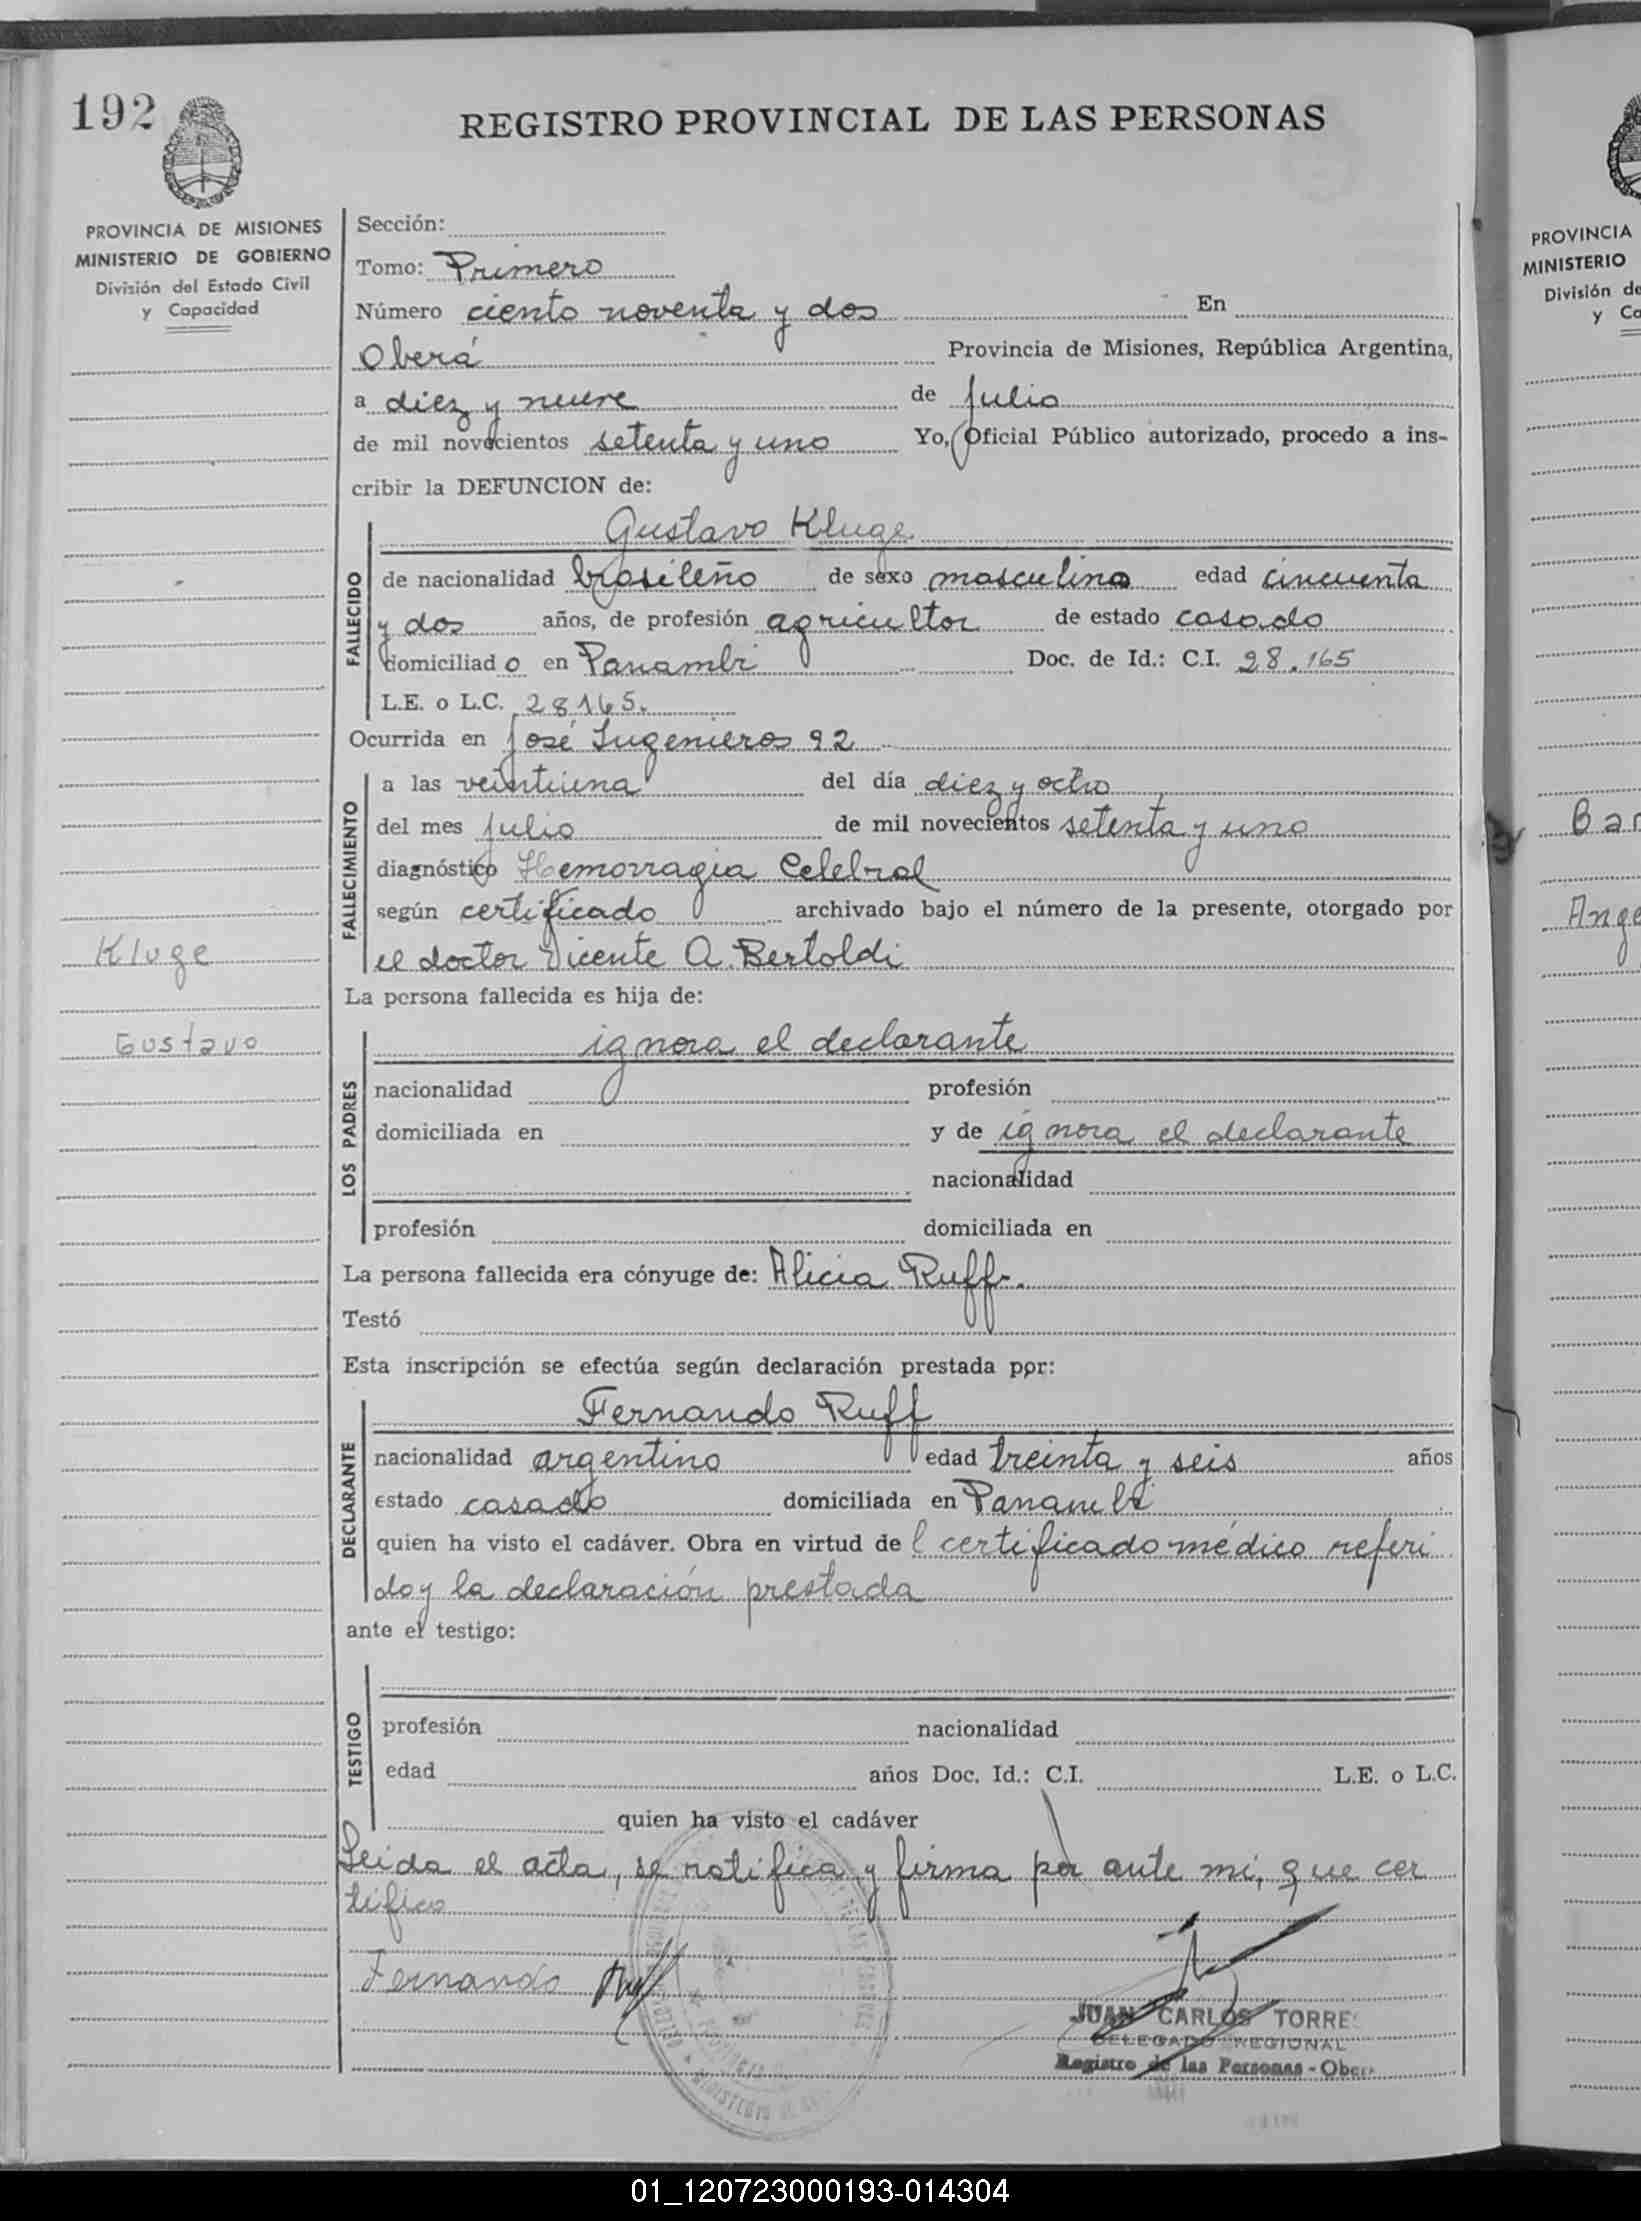 192
REGISTRO PROVINCIAL DE LAS PERSONAS
PROVINCIA DE MISIONES
MINISTERIO DE GOBIERNO
División del Estado Civil
y Capacidad
Sección:
Tomo: Primero
Número ciento noventa y dos En
Oberá Provincia de Misiones, República Argentina,
a diez y nueve de julio
de mil novecientos setenta y uno Yo, Oficial Público autorizado, procedo a ins-
cribir la DEFUNCION de:
FALLECIDO
Gustavo Kluge
de nacionalidad brasileño de sexo masculino edad cincuenta
y dos años, de profesión agricultor de estado casado
domiciliado en Panambi Doc. de Id.: C.I. 28.165
L.E. o L.C. 28165.
Ocurrida en José Ingenieros 92
FALLECIMIENTO
a las veintiuna del día diez y octro
del mes julio de mil novecientos setenta y uno
diagnóstico Hemorragia Celebral
según certificado archivado bajo el número de la presente, otorgado por
el doctor Vicente A. Bertoldi
Kluge
Gustavo
La persona fallecida es hija de:
LOS PADRES
ignora el declarante
nacionalidad profesión
domiciliada en y de ignora el declarante
nacionalidad
profesión domiciliada en
La persona fallecida era cónyuge de: Alicia Ruff.
Testó
Esta inscripción se efectúa según declaración prestada por:
DECLARANTE
Fernando Ruff
nacionalidad argentino edad treinta y seis años
estado casado domiciliada en Panambi
quien ha visto el cadáver. Obra en virtud del certificado médico referi
do y la declaración prestada
ante el testigo:
TESTIGO
profesión nacionalidad
edad años Doc. Id.: C.I. L.E. o L.C.
quien ha visto el cadáver
Leida el acta, se notifica y firma por ante mi, que cer
tifico
Fernando Ruff
JUAN CARLOS TORRES
DELEGADO REGIONAL
Registro de las Personas - Oberá
PROVINCIA
MINISTERIO
División de
y Ca
Bar
Ange
01_120723000193-014304